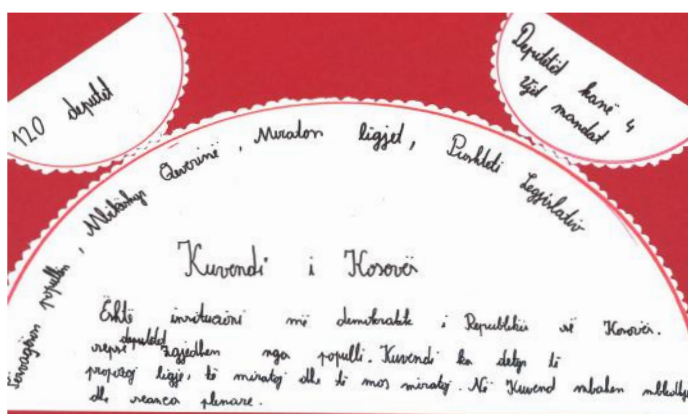 120 deputet
Deputetët kanë 4
vjet mandat
Përfaqëson popullin, Mbikëqyr Qeverinë, Miraton ligjet, Pushteti Legjislativ
Kuvendi i Kosovës
Është institucioni më demokratik i Republikës së Kosovës.
deputetët
sepse zgjedhen nga populli. Kuvendi ka detyrë të
propozoj ligje, të miratoj dhe të mos miratoj. Në Kuvend mbahen mbledhje
dhe seanca plenare.